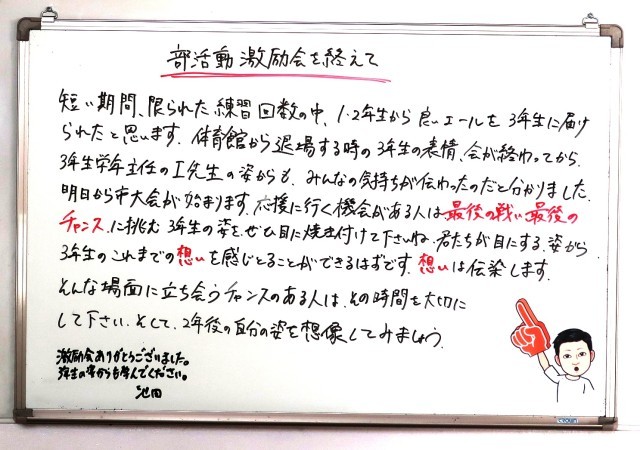 部活動激励会を終えて
短い期間、限られた練習回数の中、1・2年生から良いエールを3年生に届け
られたと思います。体育館から退場する時の3年生の表情、会が終わってから、
3年生学年主任のI先生の姿からも、みんなの気持ちが伝わったのだと分かりました。
明日から市大会が始まります。応援に行く機会がある人は最後の戦い、最後の
チャンスに挑む3年生の姿をぜひ目に焼き付けて下さいね。君たちが目にする姿から
3年生のこれまでの想いを感じとることができるはずです。想いは伝染します。
そんな場面に立ち会うチャンスのある人は、その時間を大切に
して下さい。そして、2年後の自分の姿を想像してみましょう。
激励会ありがとうございました。
3年生の姿からも学んでください。
池田